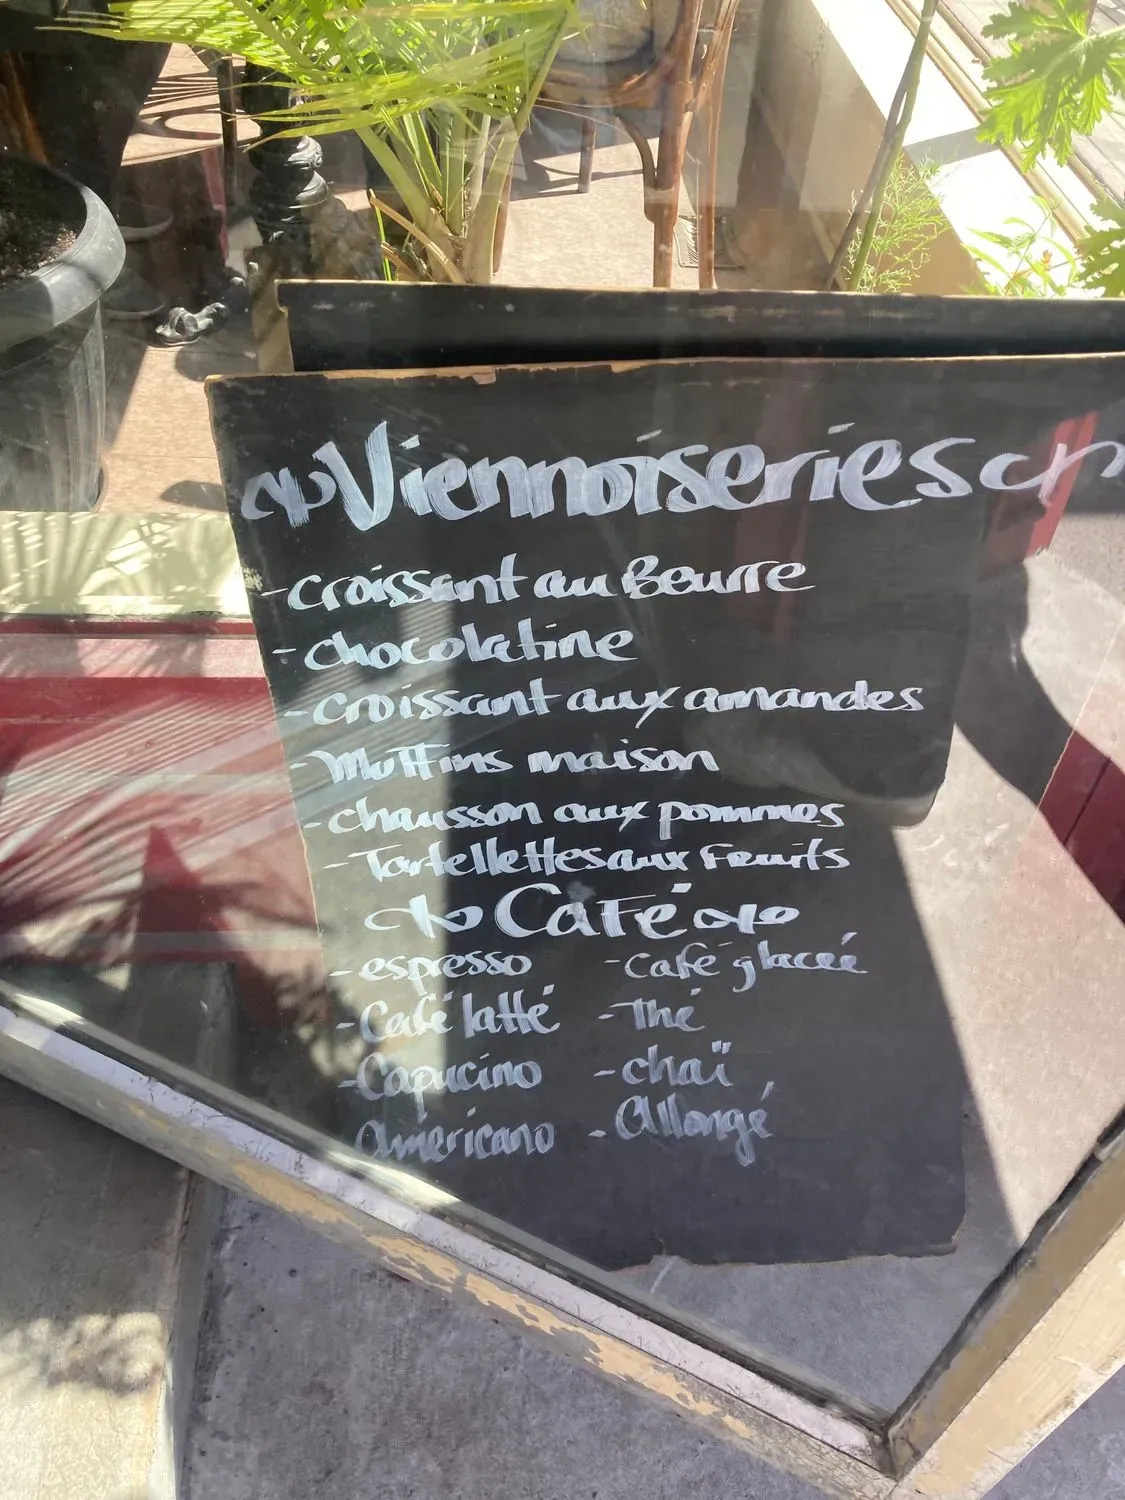 Viennoiseries
- Croissant au Beurre
- chocolatine
- croissant aux amandes
- Muffins maison
- chausson aux pommes
- Tartellettes aux Fruits
Café
- espresso
- Café latté
- Capucino
americano
- Café glacée
- Thé
- chaï
- Allongé